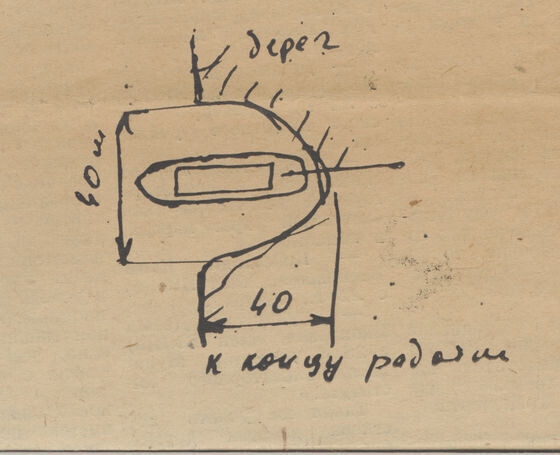 берег
40 м
40
к концу работы